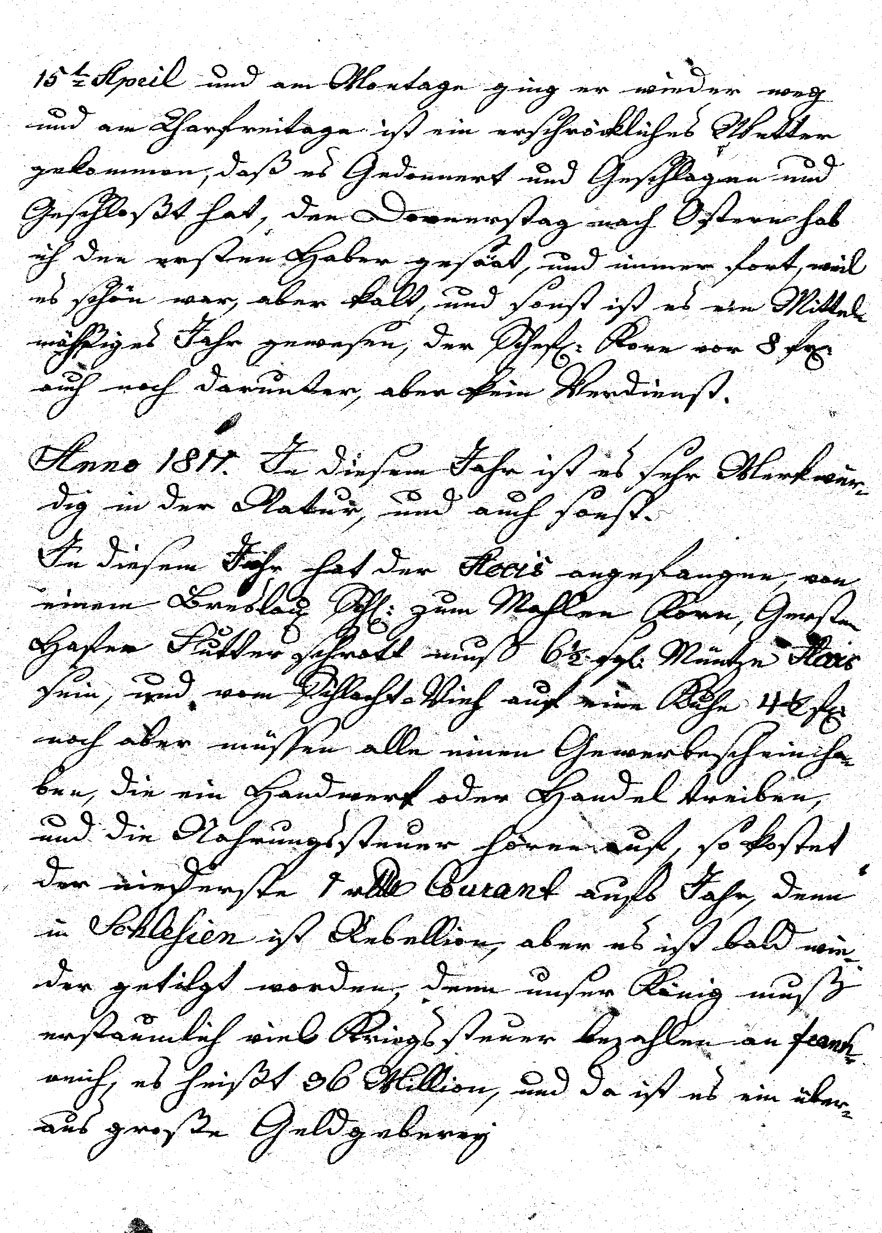 15t April und am Montage ging er wieder weg
und am Charfreitage ist ein erschröckliches Wetter
gekommen, daß es Gedonnert und Geschlagen und
Geschloßt hat, den Donnerstag nach Ostern hab
ich den ersten Haber gesäät, und immer fort, weil
es schön war, aber kalt, und sonst ist es ein Mittel-
mäßiges Jahr gewesen, der Schef: Korn vor 8 fl:
auch noch darunter, aber kein Verdienst.
Anno 1811. In diesem Jahr ist es sehr Merkwür-
dig in der Natur, und auch sonst.
In diesem Jahr hat der Accis angefangen, von
einem Breslau Schl: zum Mahlen Korn, Gersten
Hafer Futter schrott muß 6½ sgl: Müntze Accis
sein, und vom Schlacht-Vieh auf eine Kuhe 4½ fl
noch aber müssen alle einen Gewerbeschein ha-
ben, die ein Handwerk oder Handel treiben,
und die Nahrungssteuer hören auf, so kostet
der niederste 1 rthl Courant aufs Jahr, denn
in Schlesien ist Rebellion, aber es ist bald wie-
der getilgt worden, denn unser König muß
erstaunlich viel Kriegssteuer bezahlen an frank-
reich, es heißt 36 Million, und da ist es ein über-
aus große Geldgeberey